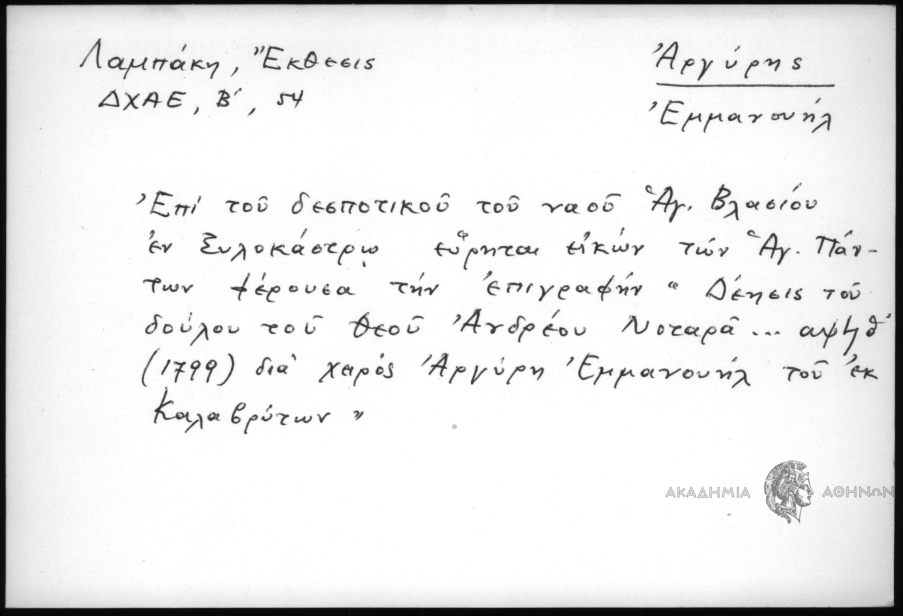 Λαμπάκη, Ἔκθεσις
ΔΧΑΕ, Β΄, 54
Ἀργύρης
Ἐμμανουήλ
Ἐπί τοῦ δεσποτικοῦ τοῦ ναοῦ Ἁγ. Βλασίου
ἐν Ξυλοκάστρῳ εὕρηται εἰκών τῶν Ἁγ. Πάν-
των φέρουσα τήν ἐπιγραφήν " Δέησις τοῦ
δούλου τοῦ Θεοῦ Ἀνδρέου Νοταρᾶ ... αψϟθ΄
(1799) διά χειρός Ἀργύρη Ἐμμανουήλ τοῦ ἐκ
Καλαβρύτων "
ΑΚΑΔΗΜΙΑ ΑΘΗΝΩΝ